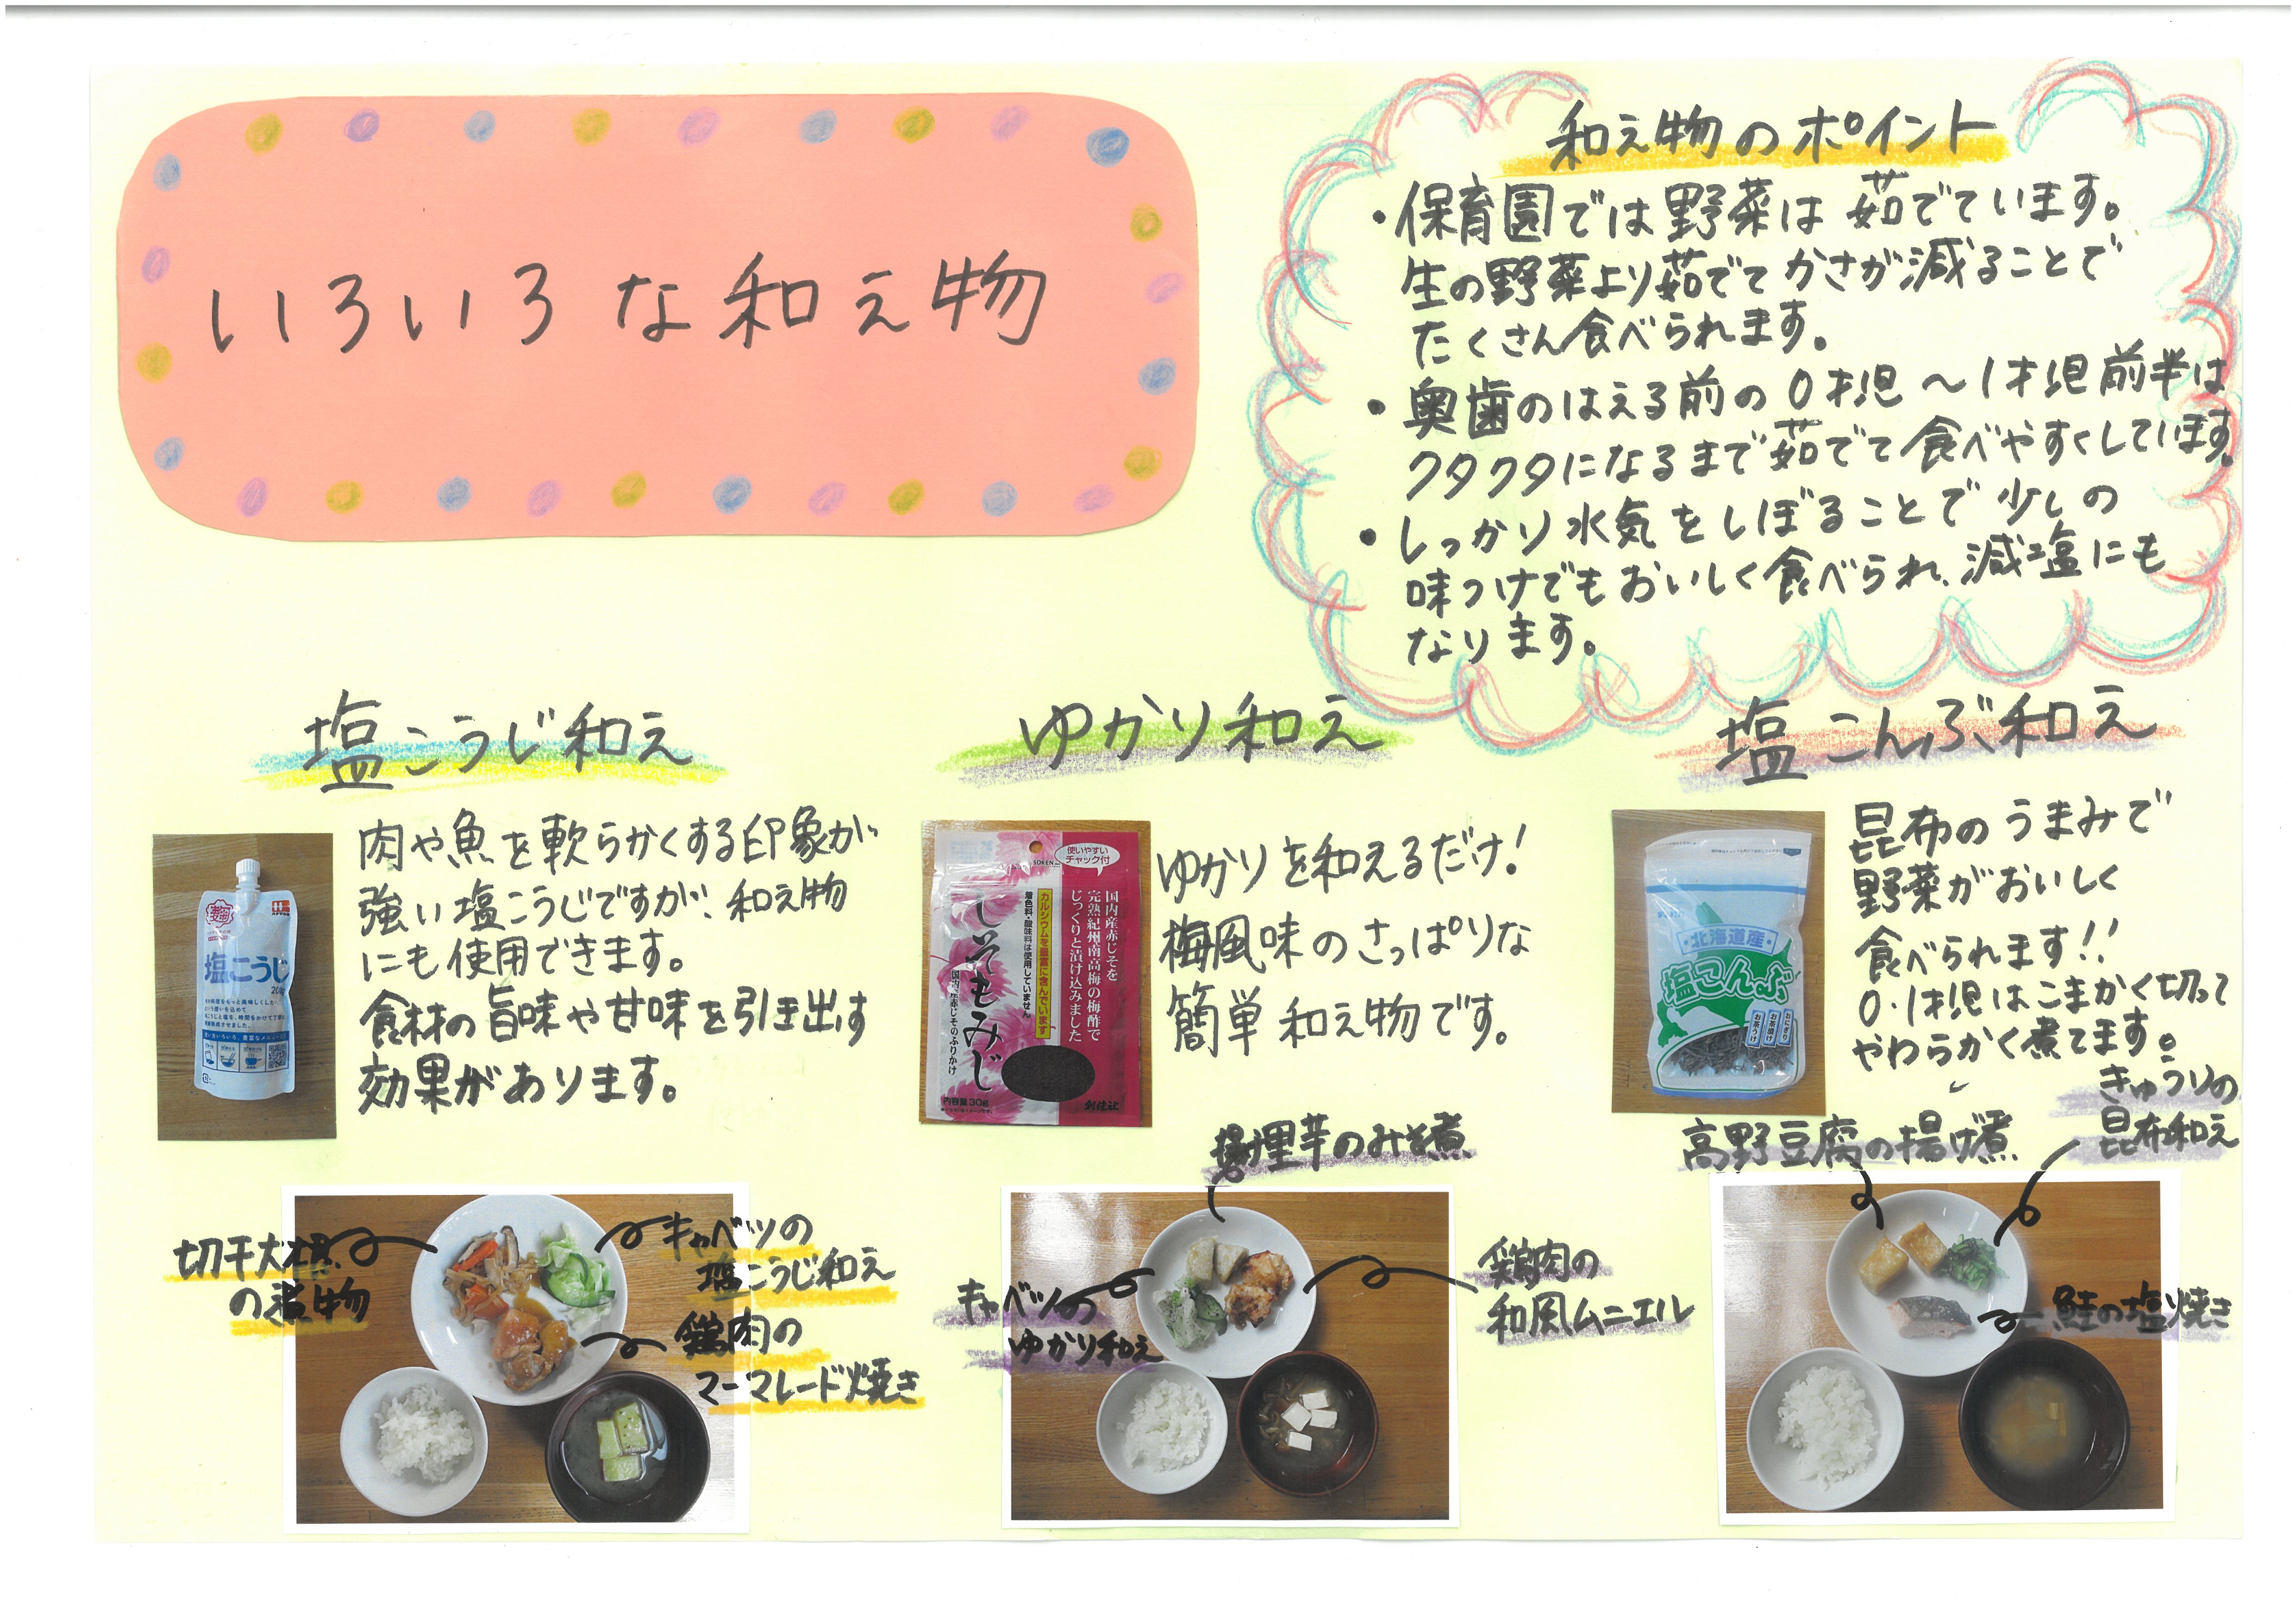 いろいろな和え物
和え物のポイント
・保育園では野菜は茹でています。
生の野菜より茹でてかさが減ることで
たくさん食べられます。
・奥歯のはえる前の0才児〜1才児前半は
クタクタになるまで茹でて食べやすくしています。
・しっかり水気をしぼることで少しの
味つけでもおいしく食べられ、減塩にも
なります。
塩こうじ和え
肉や魚を軟らかくする印象が
強い塩こうじですが、和え物
にも使用できます。
食材の旨味や甘味を引き出す
効果があります。
塩こうじ
切干大根
の煮物
キャベツの
塩こうじ和え
鶏肉の
マーマレード焼き
ゆかり和え
ゆかりを和えるだけ!
梅風味のさっぱりな
簡単和え物です。
使いやすい
チャック付
国内産赤じそを
完熟紀州南高梅の梅酢で
じっくりと漬け込みました
カルシウムを豊富に含んでいます
着色料・酸味料は使用していません
しそもみじ
国内産赤じそのふりかけ
内容量30g
創健社
里芋のみそ煮
キャベツの
ゆかり和え
鶏肉の
和風ムニエル
塩こんぶ和え
昆布のうまみで
野菜がおいしく
食べられます!!
0・1才児はこまかく切って
やわらかく煮てます。
北海道産
塩こんぶ
おにぎり
お茶漬け
お茶うけ
高野豆腐の揚げ煮
きゅうりの
昆布和え
鮭の塩焼き